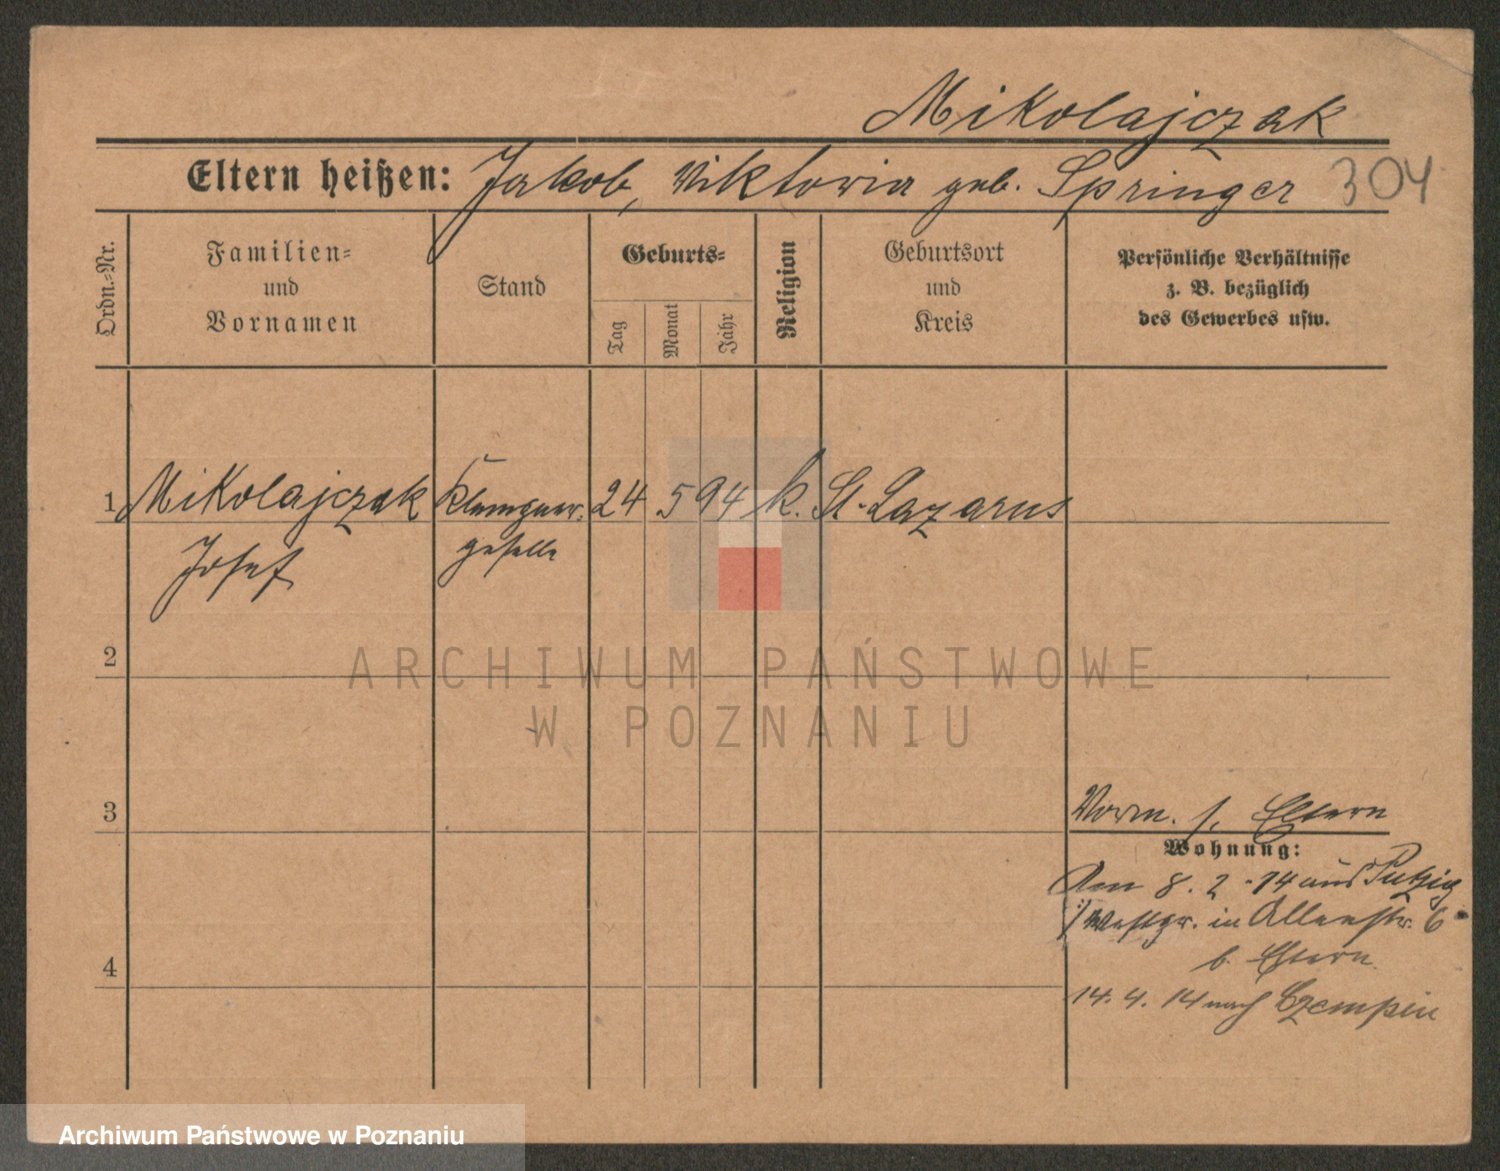 Mikolajczak
Eltern heißen: Jakob, Viktoria geb. Springer 304
Ordn.-Nr.
Familien-
und
Vornamen
Stand
Geburts-
Tag
Monat
Jahr
Religion
Geburtsort
und
Kreis
Persönliche Verhältnisse
z. B. bezüglich
des Gewerbes usw.
1 Mikolajczak Klempner- 24 5 94 k. St. Lazarus
Josef geselle
2
ARCHIWUM PAŃSTWOWE
W POZNANIU
3
Vorm. s. Eltern
Wohnung:
Am 8. 2. 14 aus Putzig
i/ Westpr. in Allenstr. 6
b. Eltern
4
14. 4. 14 nach Czempin
Archiwum Państwowe w Poznaniu